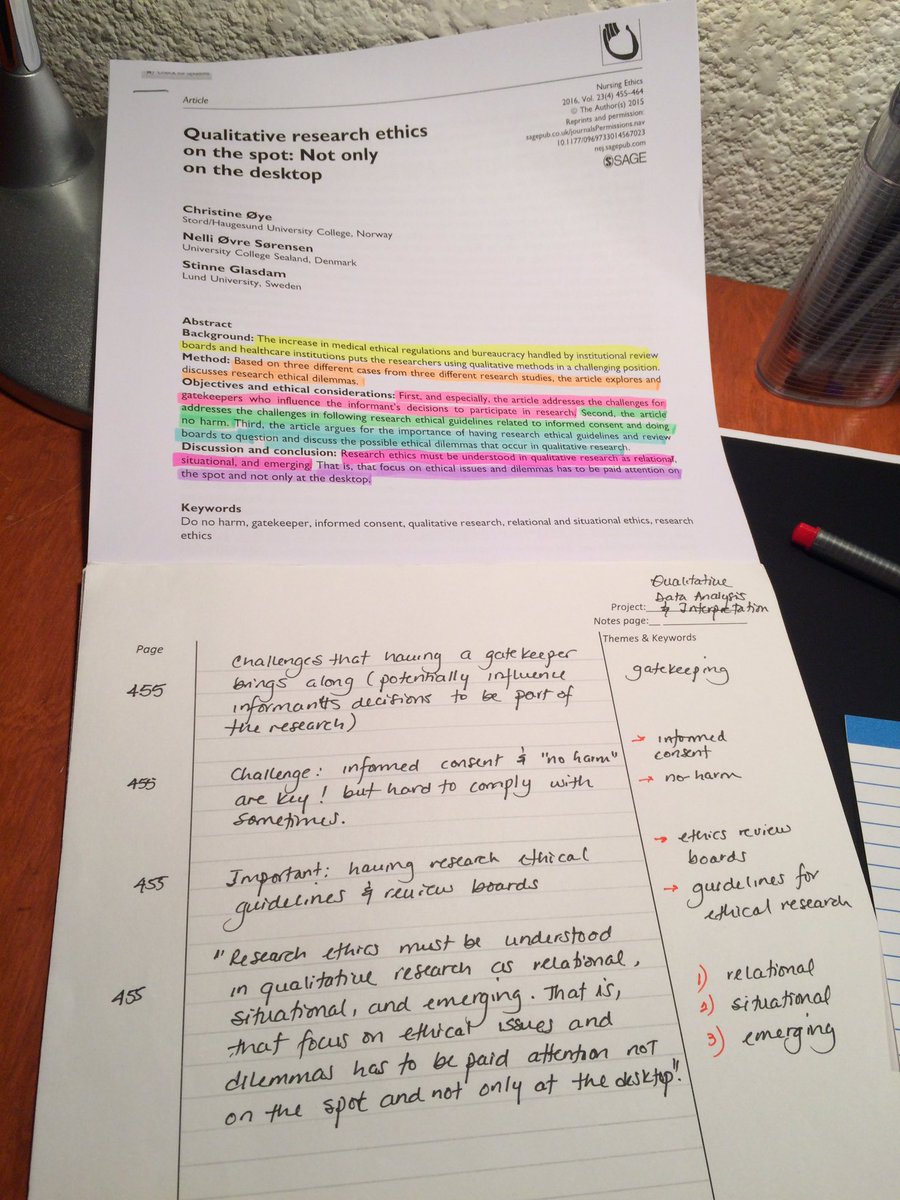 Article
Nursing Ethics
2016, Vol. 23(4) 455–464
© The Author(s) 2015
Reprints and permission:
sagepub.co.uk/journalsPermissions.nav
10.1177/0969733014567023
nej.sagepub.com
SAGE
Qualitative research ethics
on the spot: Not only
on the desktop
Christine Øye
Stord/Haugesund University College, Norway
Nelli Øvre Sørensen
University College Sealand, Denmark
Stinne Glasdam
Lund University, Sweden
Abstract
Background: The increase in medical ethical regulations and bureaucracy handled by institutional review
boards and healthcare institutions puts the researchers using qualitative methods in a challenging position.
Method: Based on three different cases from three different research studies, the article explores and
discusses research ethical dilemmas.
Objectives and ethical considerations: First, and especially, the article addresses the challenges for
gatekeepers who influence the informant's decisions to participate in research. Second, the article
addresses the challenges in following research ethical guidelines related to informed consent and doing
no harm. Third, the article argues for the importance of having research ethical guidelines and review
boards to question and discuss the possible ethical dilemmas that occur in qualitative research.
Discussion and conclusion: Research ethics must be understood in qualitative research as relational,
situational, and emerging. That is, that focus on ethical issues and dilemmas has to be paid attention on
the spot and not only at the desktop.
Keywords
Do no harm, gatekeeper, informed consent, qualitative research, relational and situational ethics, research
ethics
Qualitative
Data Analysis
Project: & Interpretation
Notes page:
Page
Themes & Keywords
455
Challenges that having a gatekeeper
brings along (potentially influence
informant's decisions to be part of
the research)
gatekeeping
455
Challenge: informed consent & "no harm"
are key! but hard to comply with
sometimes.
→ informed
consent
→ no harm
455
Important: having research ethical
guidelines & review boards
→ ethics review
boards
→ guidelines for
ethical research
455
"Research ethics must be understood
in qualitative research as relational,
situational, and emerging. That is,
that focus on ethical issues and
dilemmas has to be paid attention not
on the spot and not only at the desktop".
1) relational
2) situational
3) emerging